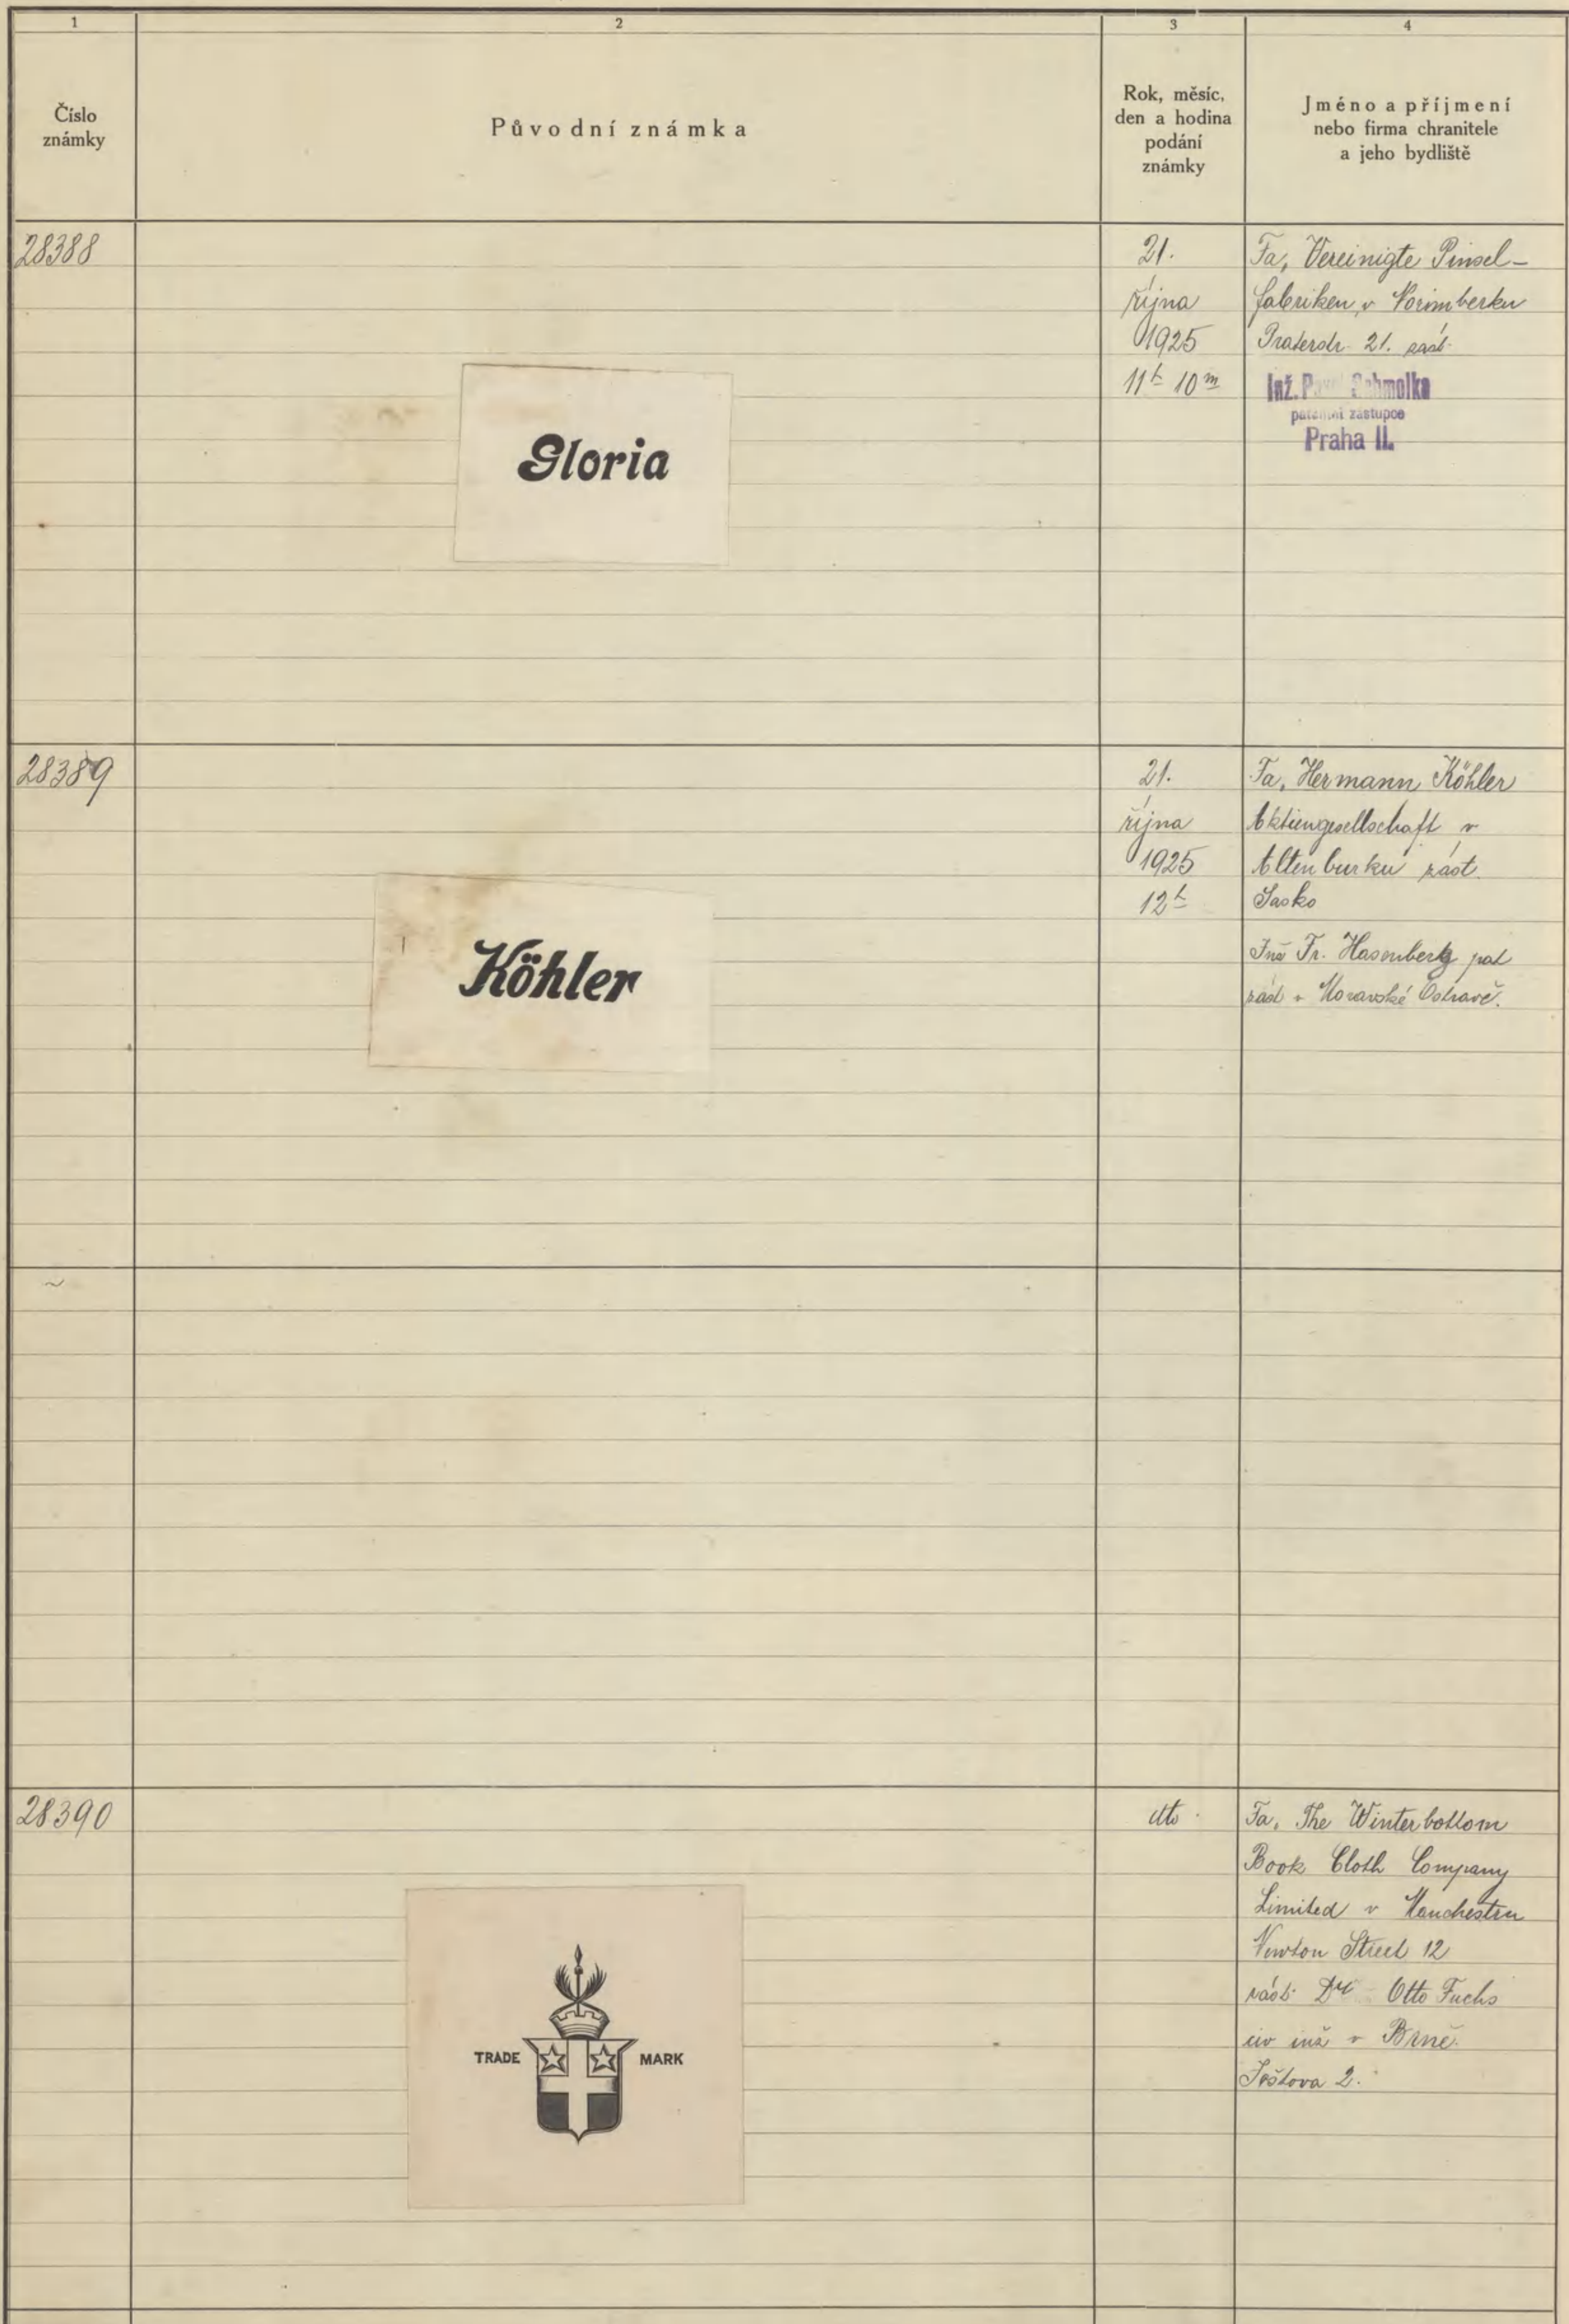 1
2
3
4
Číslo
známky
Původní známka
Rok, měsíc,
den a hodina
podání
známky
Jméno a příjmení
nebo firma chranitele
a jeho bydliště
28388
21.
října
1925
11h 10m
Fa, Vereinigte Pinsel-
fabriken v Norimberku
Praterstr. 21. zást.
Inž. Pavel Schmolka
patentní zástupce
Praha II.
Gloria
28389
21.
října
1925
12h
Fa, Hermann Köhler
Aktiengesellschaft v
Altenburku zást.
Sasko
Inž Fr. Hasenberg pat
zást v Moravské Ostravě.
Köhler
28390
dto
Fa, The Winterbottom
Book Cloth Company
Limited v Manchestru
Newton Street 12
zást. Dr Otto Fuchs
civ inž v Brně.
2.
TRADE MARK